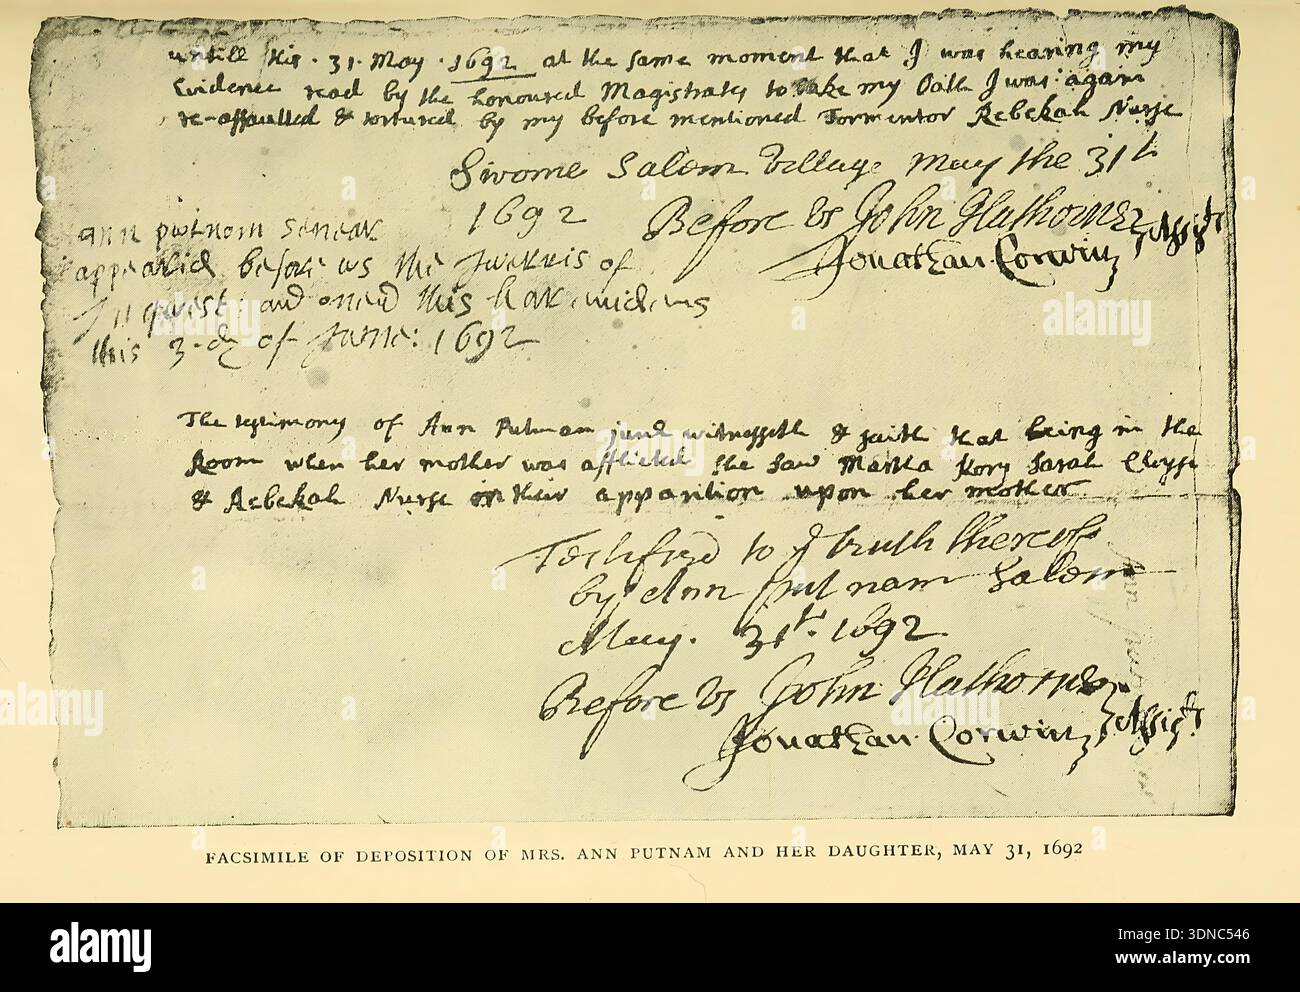 untill this . 31 . May . 1692 at the same moment that I was hearing my
Evidence read by the honoured Magistrates to take my Oath I was again
re-assaulted & tortured by my before mentioned Tormentor Rebekah Nurse
Sworne Salem Village May the 31t
1692 Before us John Hathorne
Jonathan Corwin } Assists
ann putnam senear
appearid before us the
Inquest: and owned this har evidens
this 3. dy of June: 1692
The testimony of Ann Putnam junr witnesseth & saith that being in the
Room when her mother was afflicted she saw Martha Kory Sarah Cloyse
& Rebekah Nurse or their apparition upon her mother
Testified to ye truth thereof
by Ann Putnam Salem
May. 31t. 1692
Before us John Hathorne
Jonathan Corwin } Assists
FACSIMILE OF DEPOSITION OF MRS. ANN PUTNAM AND HER DAUGHTER, MAY 31, 1692
alamy
Image ID: 3DNC546
www.alamy.com